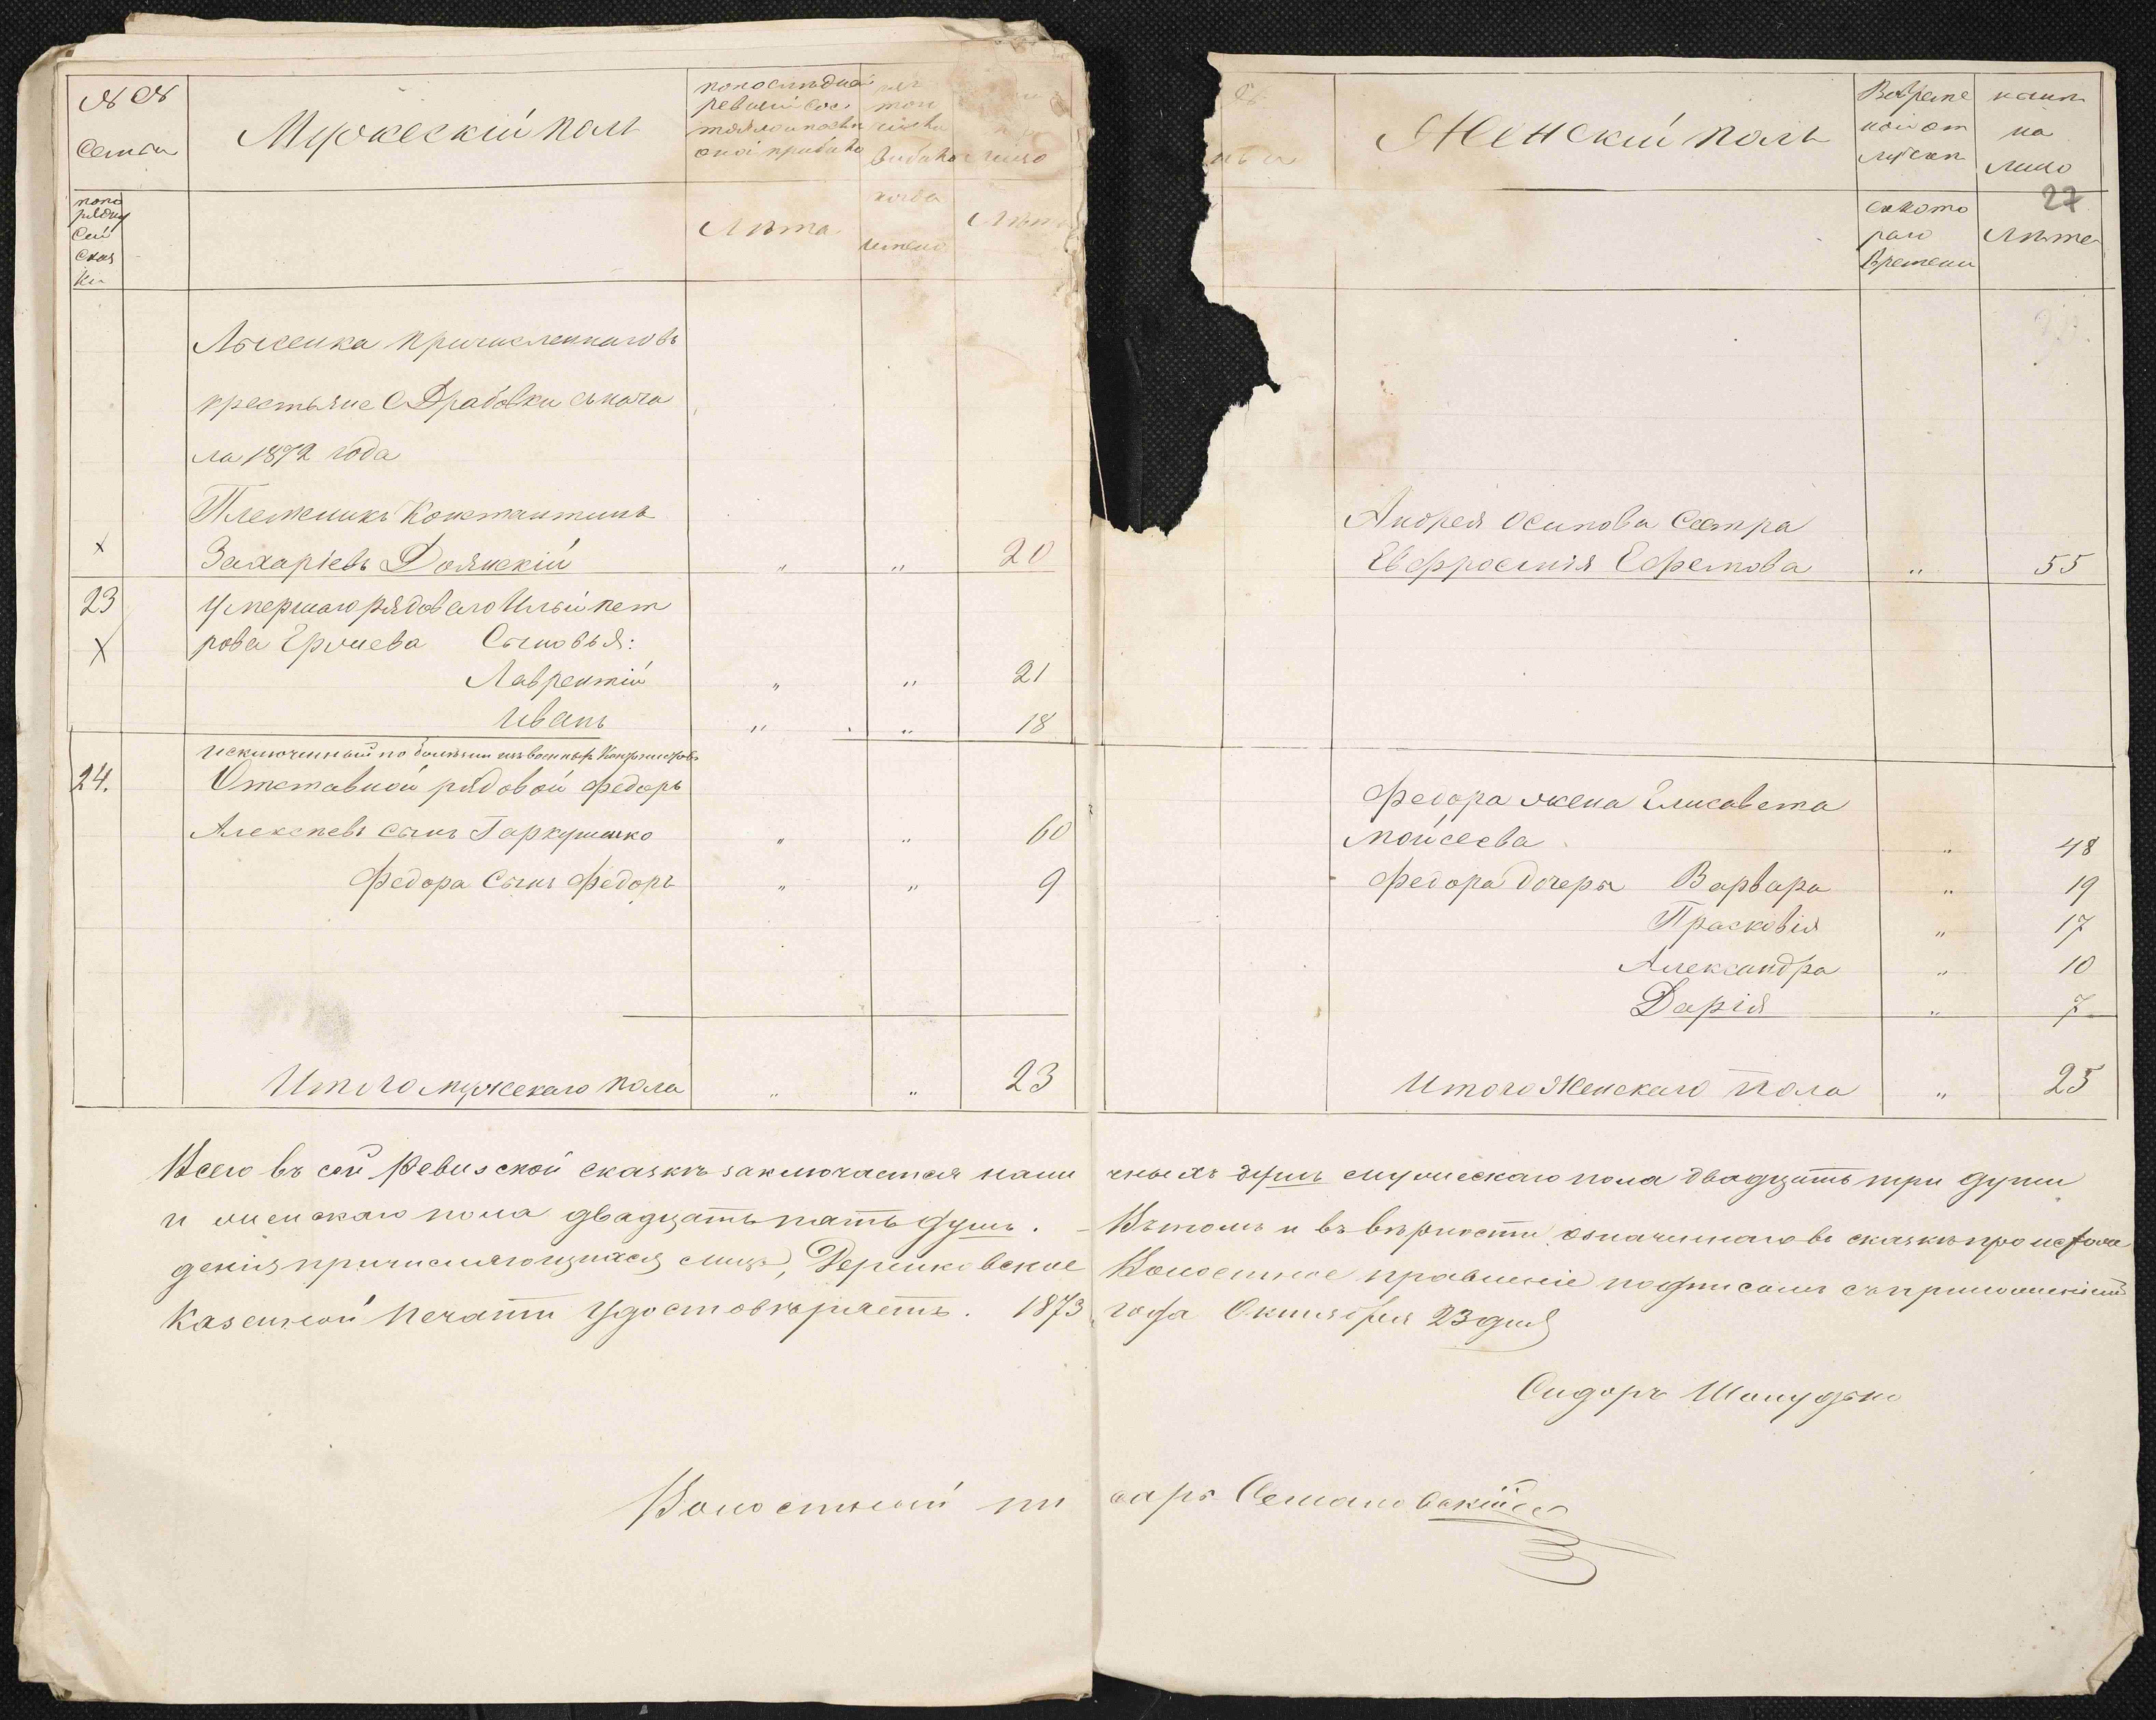 №№
Семьи
Мужескій полъ
попослѣдней
ревизіи сос
тояло и послѣ
оной прибыло
изъ
того
числа
выбыло
лицо
попо
рядку
сей
сказ
ки
Лѣта
когда
имено
Лѣта
Лысенка причисленнаго въ
крестьяне С Драбовки съ нача
ла 1872 года
Племеникъ Константинъ
х Захаріевъ Должскій " " 20
23 умершаго рядоваго Ильи пет
х рова Ермиева Сыновья:
Лаврентій " " 21
Иванъ " " 18
исключинный по болѣзни изъ военныхъ
24. Отставной рядовой Федоръ
Алексѣевъ сынъ Гаркушенко " " 60
Федора Сынъ Федоръ " " 9
Итого мужескаго пола " " 23
Женскій полъ
Вовреме
ной от
лучки
налич
на
лицо
27
ското
раго
времени
Лѣта
Андрея Осипова Сестра
Евфросинія Ефемова " 55
Федора жена Елисавета
Мойсеева " 48
Федора дочеры Варвара " 19
Прасковія " 17
Александра " 10
Дарія " 7
Итого Женскаго пола " 25
Всего въ сей Ревизской сказкѣ заключается нали чныхъ душъ мужескаго пола двадцать три души
и женскаго пола двадцать пять душъ. – Въ томъ и въ вѣрности означинаго въ сказкѣ происхож
денія причисляющихся лицъ, Деренковское Волостное правленіе подписомъ съ приложеніемъ
Казенной печати удостовѣряетъ. 1873 года Октября 23 дня
Сидоръ Шолудько
Волостной пи саръ Семановскій